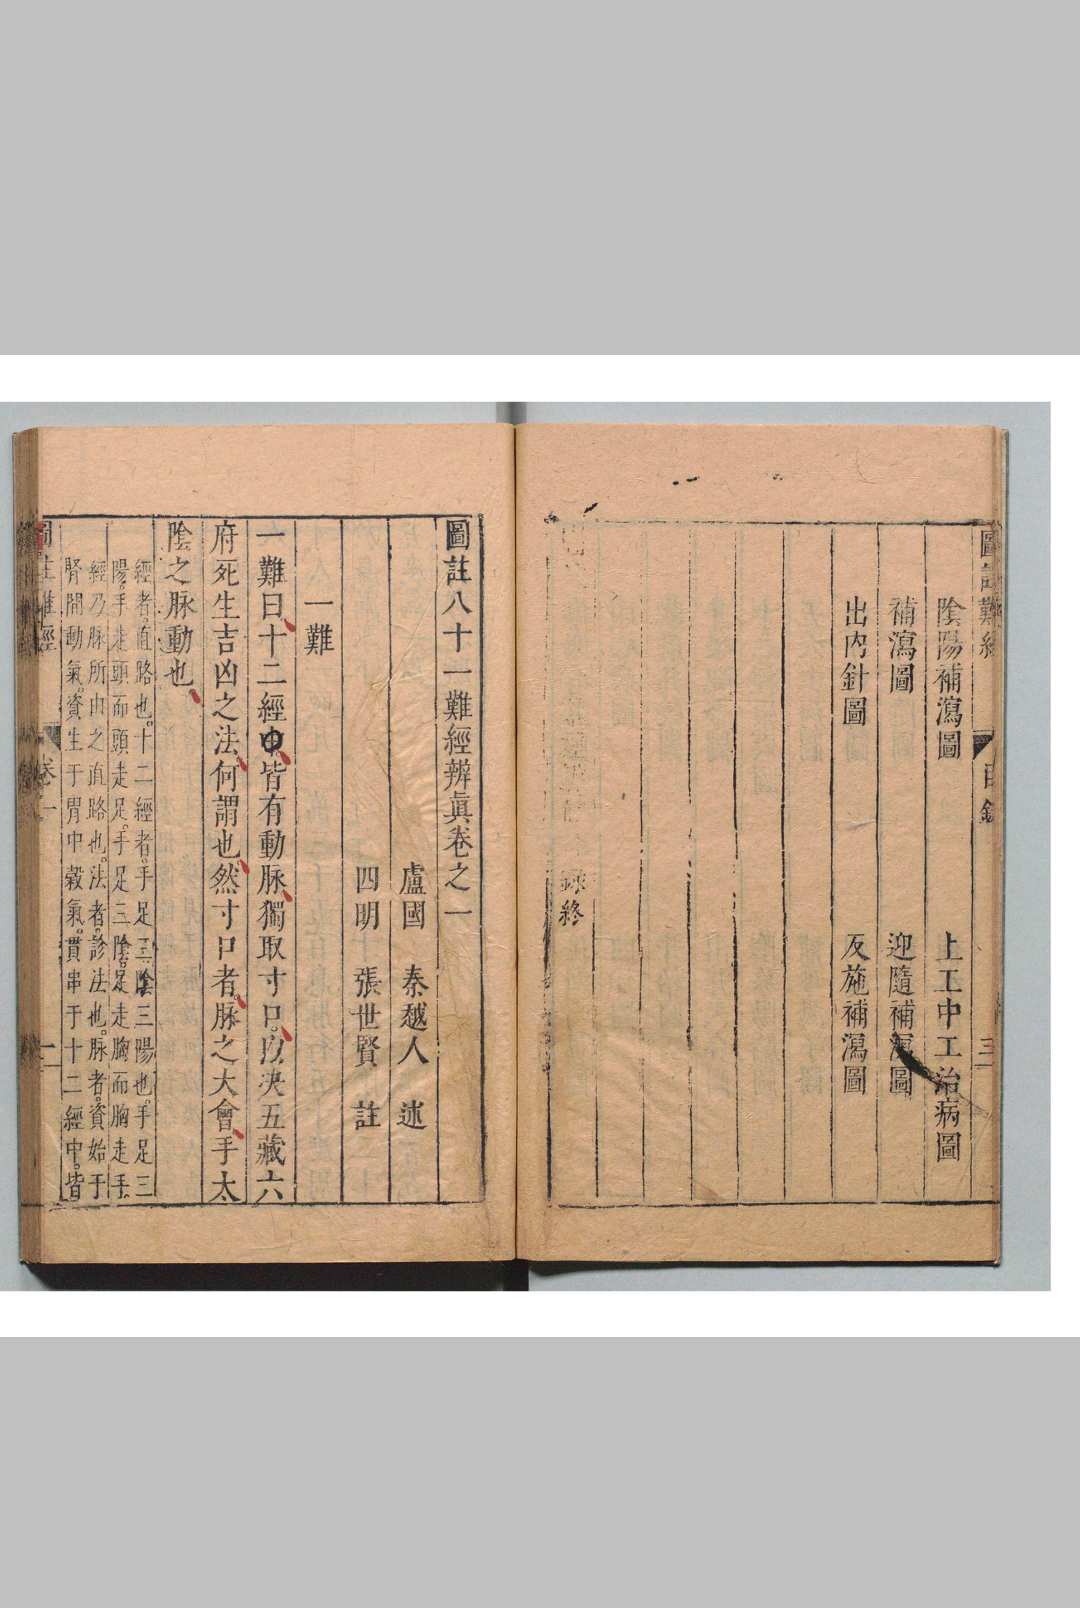 圖註難經
目錄
三
陰陽補瀉圖
上工中工治病圖
補瀉圖
迎隨補瀉圖
出內針圖
反施補瀉圖
錄終
圖註八十一難經辨眞卷之一
盧國 秦越人 述
四明 張世賢 註
一難
一難曰十二經中皆有動脉獨取寸口以決五藏六
府死生吉凶之法何謂也然寸口者脉之大會手太
陰之脉動也
經者直路也十二經者手足三陰三陽也手足三
陽手走頭而頭走足手足三陰足走胸而胸走手
經乃脉所由之直路也法者診法也脉者資始于
腎間動氣資生于胃中穀氣貫串于十二經中皆
圖註難經
卷一
一